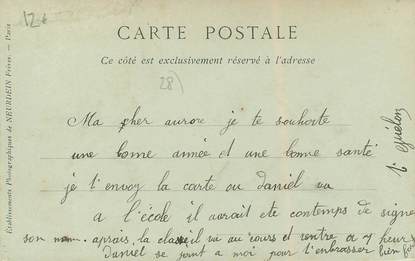 12€
CARTE POSTALE
Ce côté est exclusivement réservé à l'adresse
28)
Ma cher aurore je te souhaite
une bonne année et une bonne santé
je t'envoy la carte ou Daniel va
a l'école il aurait ete contemps de signer
son nom. aprais la classe il va au cours et rentre a 7 heur
Daniel se joint a moi pour t'embrasser bien
Etablissements Photographiques de NEURDEIN Frères. — Paris